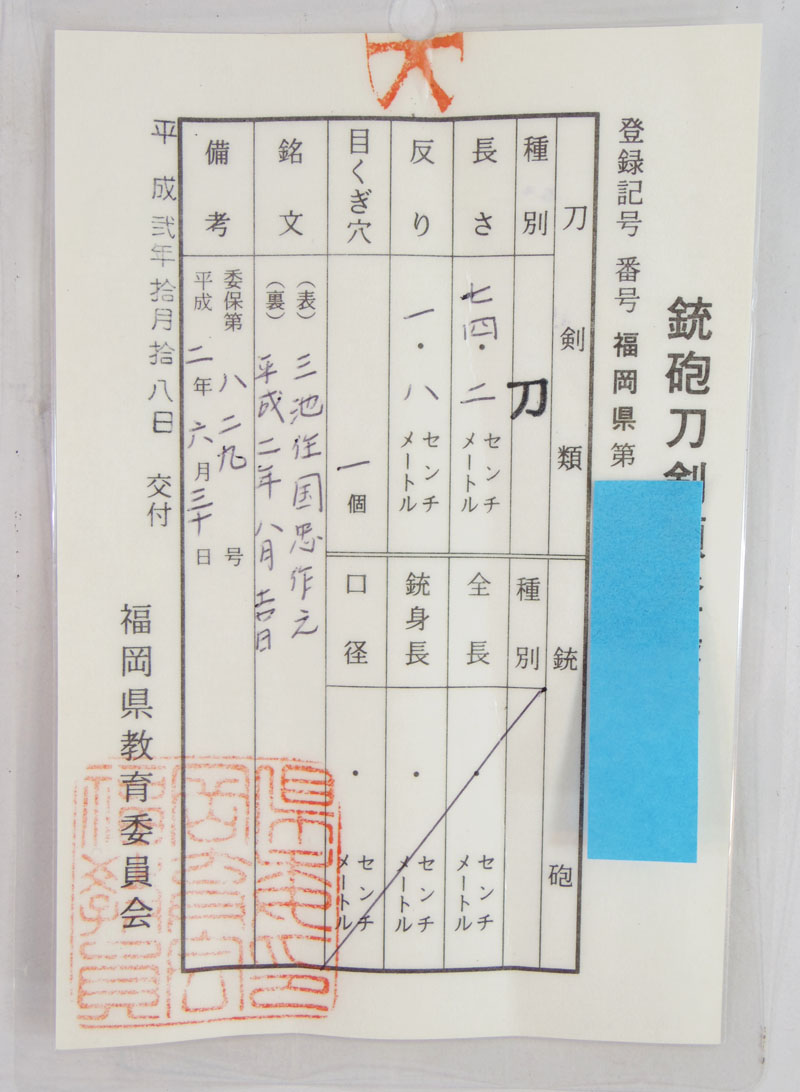 銃砲刀剣
登録記号番号福岡県第
刀剣類
種別
刀
長さ
七四・二
センチメートル
反り
一・八
センチメートル
目くぎ穴
一個
銘文
(表)三池住国忠作之
(裏)平成二年八月吉日
備考
委保第八二九号
平成二年六月三十日
銃砲
種別
全長
・
センチメートル
銃身長
・
センチメートル
口径
・
センチメートル
平成弐年拾月拾八日 交付
福岡県教育委員会